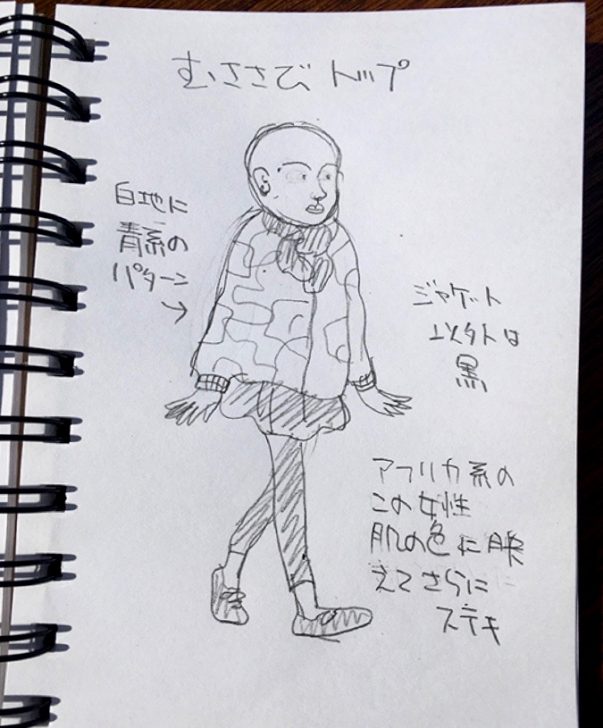 むささびトップ
白地に
青系の
パターン
→
ジャケット
以外は
黒
アフリカ系の
この女性
肌の色に映
えてさらに
ステキ